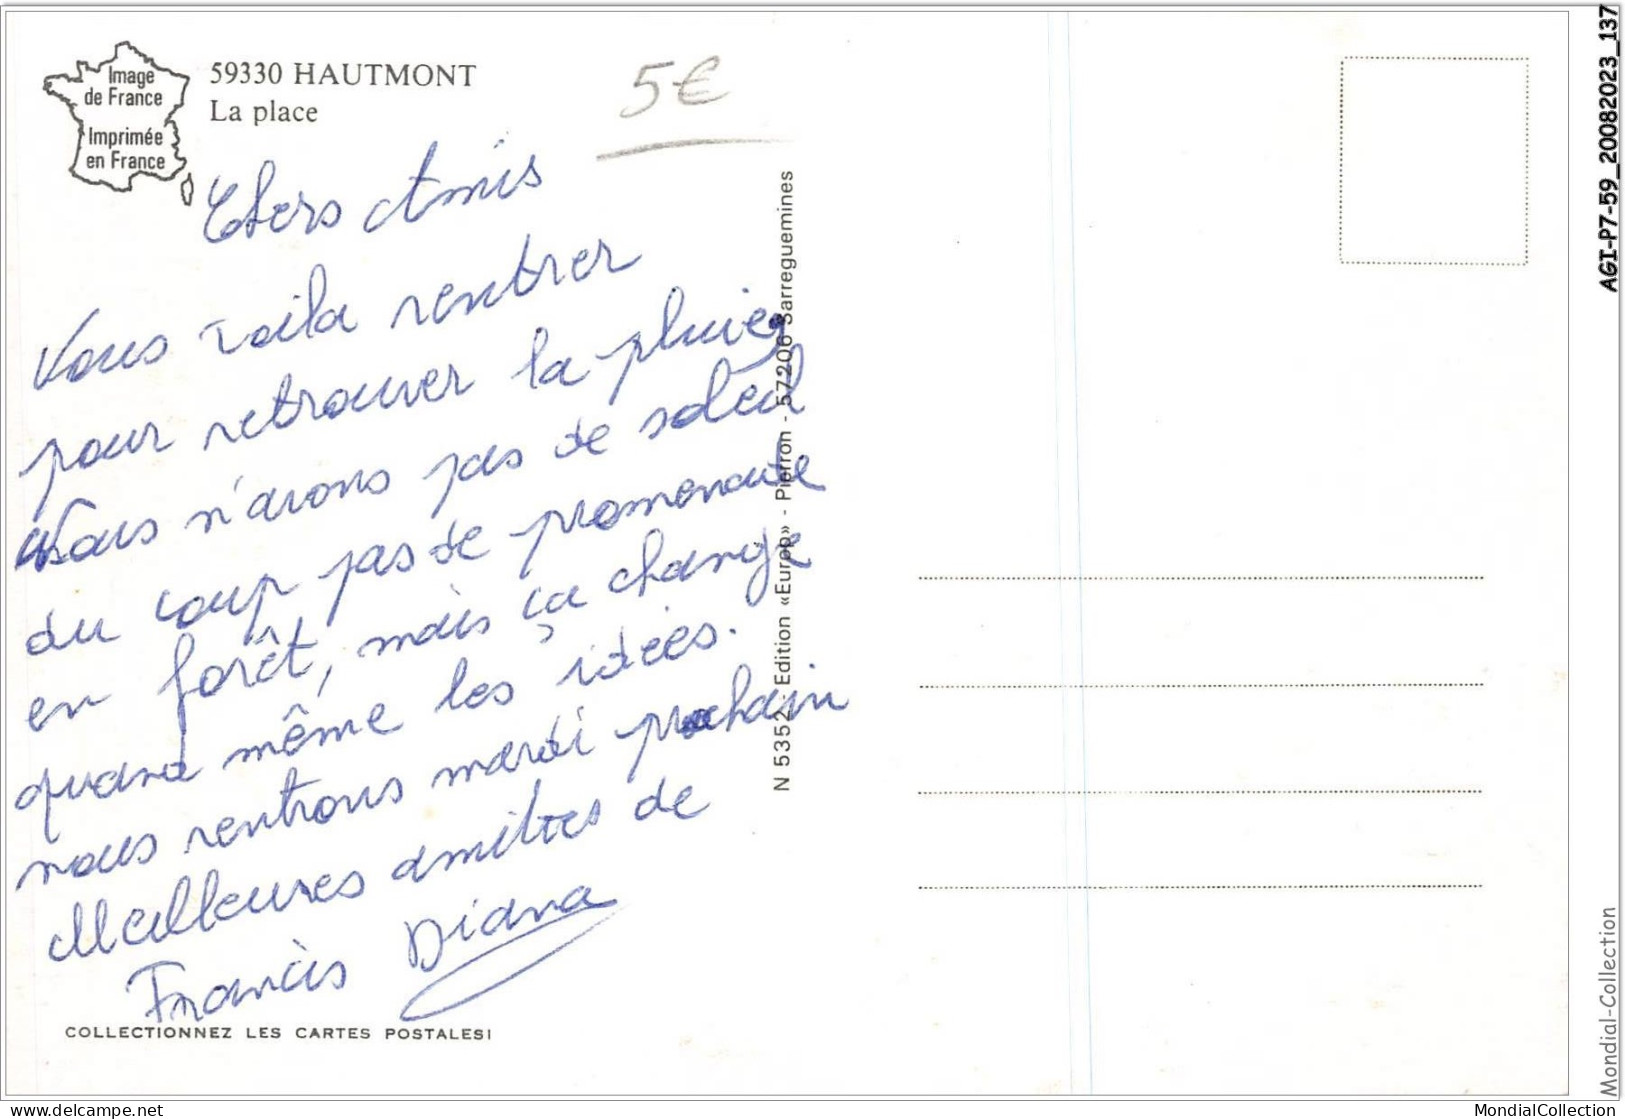 Image
de France
Imprimée
en France
59330 HAUTMONT
La place
5€
Chers Amis
Vous voila rentrer
pour retrouver la pluie,
Nous n'avons pas de soleil
du coup pas de promenade
en forêt, mais ça change
quand même les idées.
nous rentrons mardi prochain
Meilleures amitiés de
Francis Diana
COLLECTIONNEZ LES CARTES POSTALES!
N 5352 Edition «Europ» - Pierron - 57206 Sarreguemines
AGI-P7-59_20082023_137
Mondial-Collection
delcampe.net
MondialCollection